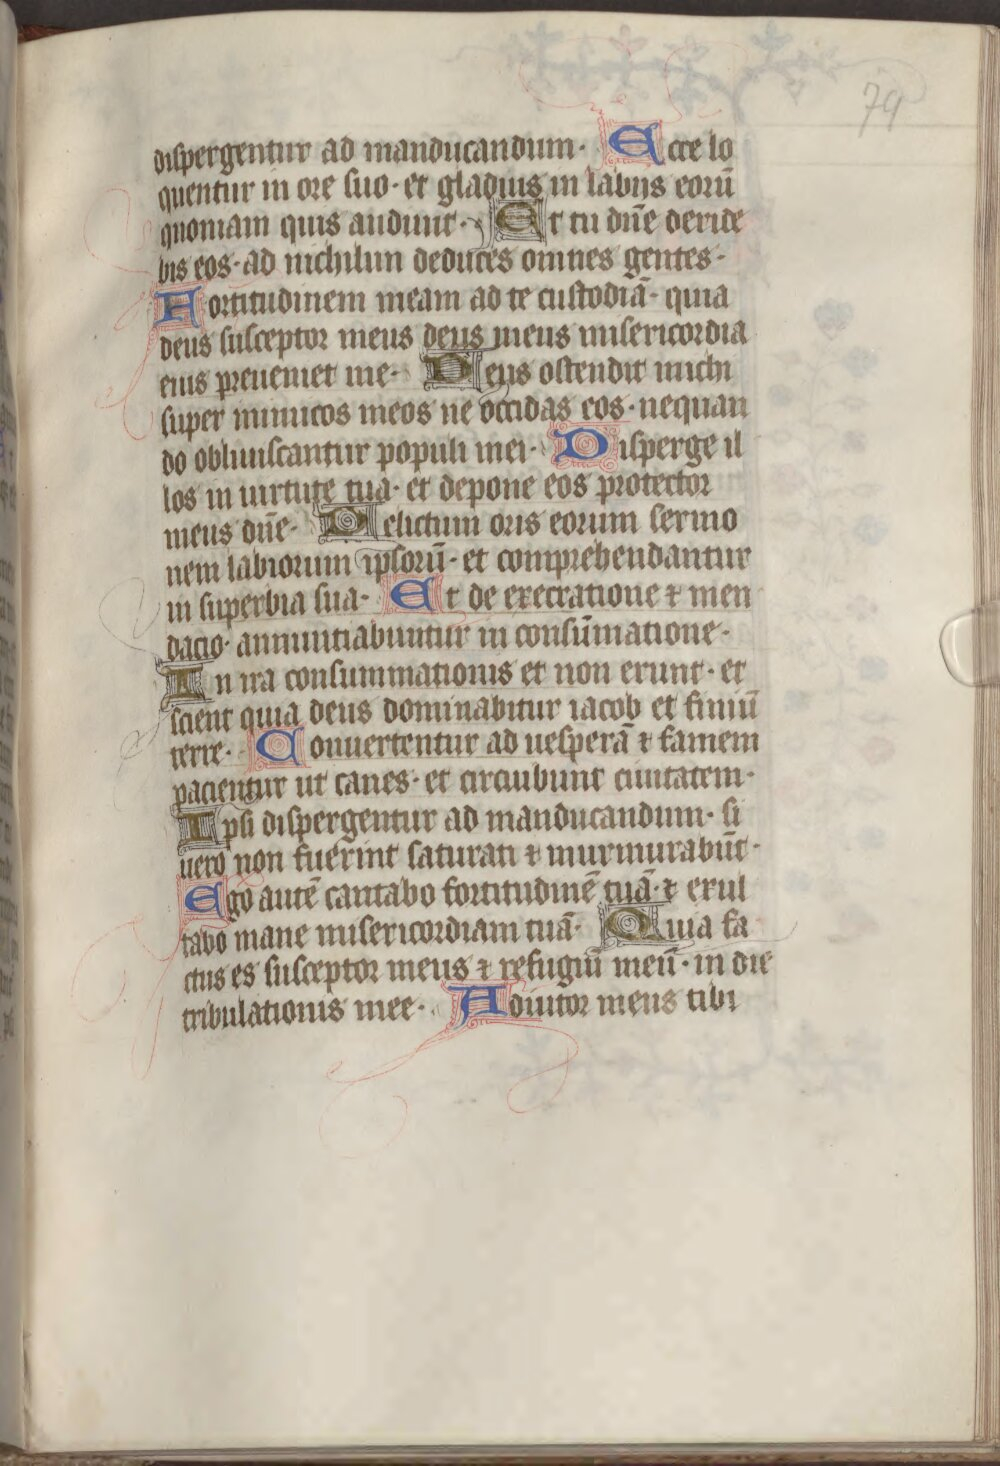 79
dispergentur ad manducandum· Ecce lo
quentur in ore suo· et gladius in labijs eorū
quoniam quis audiuit· Et tu dn̄e deride
bis eos· ad nichilum deduces omnes gentes·
Fortitudinem meam ad te custodiā· quia
deus susceptor meus deus meus misericordia
eius preueniet me· Deus ostendit michi
super inimicos meos ne occidas eos· nequan
do obliuiscantur populi mei· Disperge il
los in uirtute tua· et depone eos protector
meus dn̄e· Delictum oris eorum sermo
nem labiorum ipsorū· et comprehendantur
in superbia sua· Et de execratione ⁊ men
dacio· annuntiabuntur in consūmatione·
In ira consummationis et non erunt· et
scient quia deus dominabitur iacob et finiū
terre· Conuertentur ad uesperā ⁊ famem
pacientur ut canes· et circuibunt ciuitatem·
Ipsi dispergentur ad manducandum· si
uero non fuerint saturati ⁊ murmurabūt·
Ego autē cantabo fortitudinē tuā· ⁊ exul
tabo mane misericordiam tuā· Quia fa
ctus es susceptor meus ⁊ refugiū meū· in die
tribulationis mee· Adiutor meus tibi